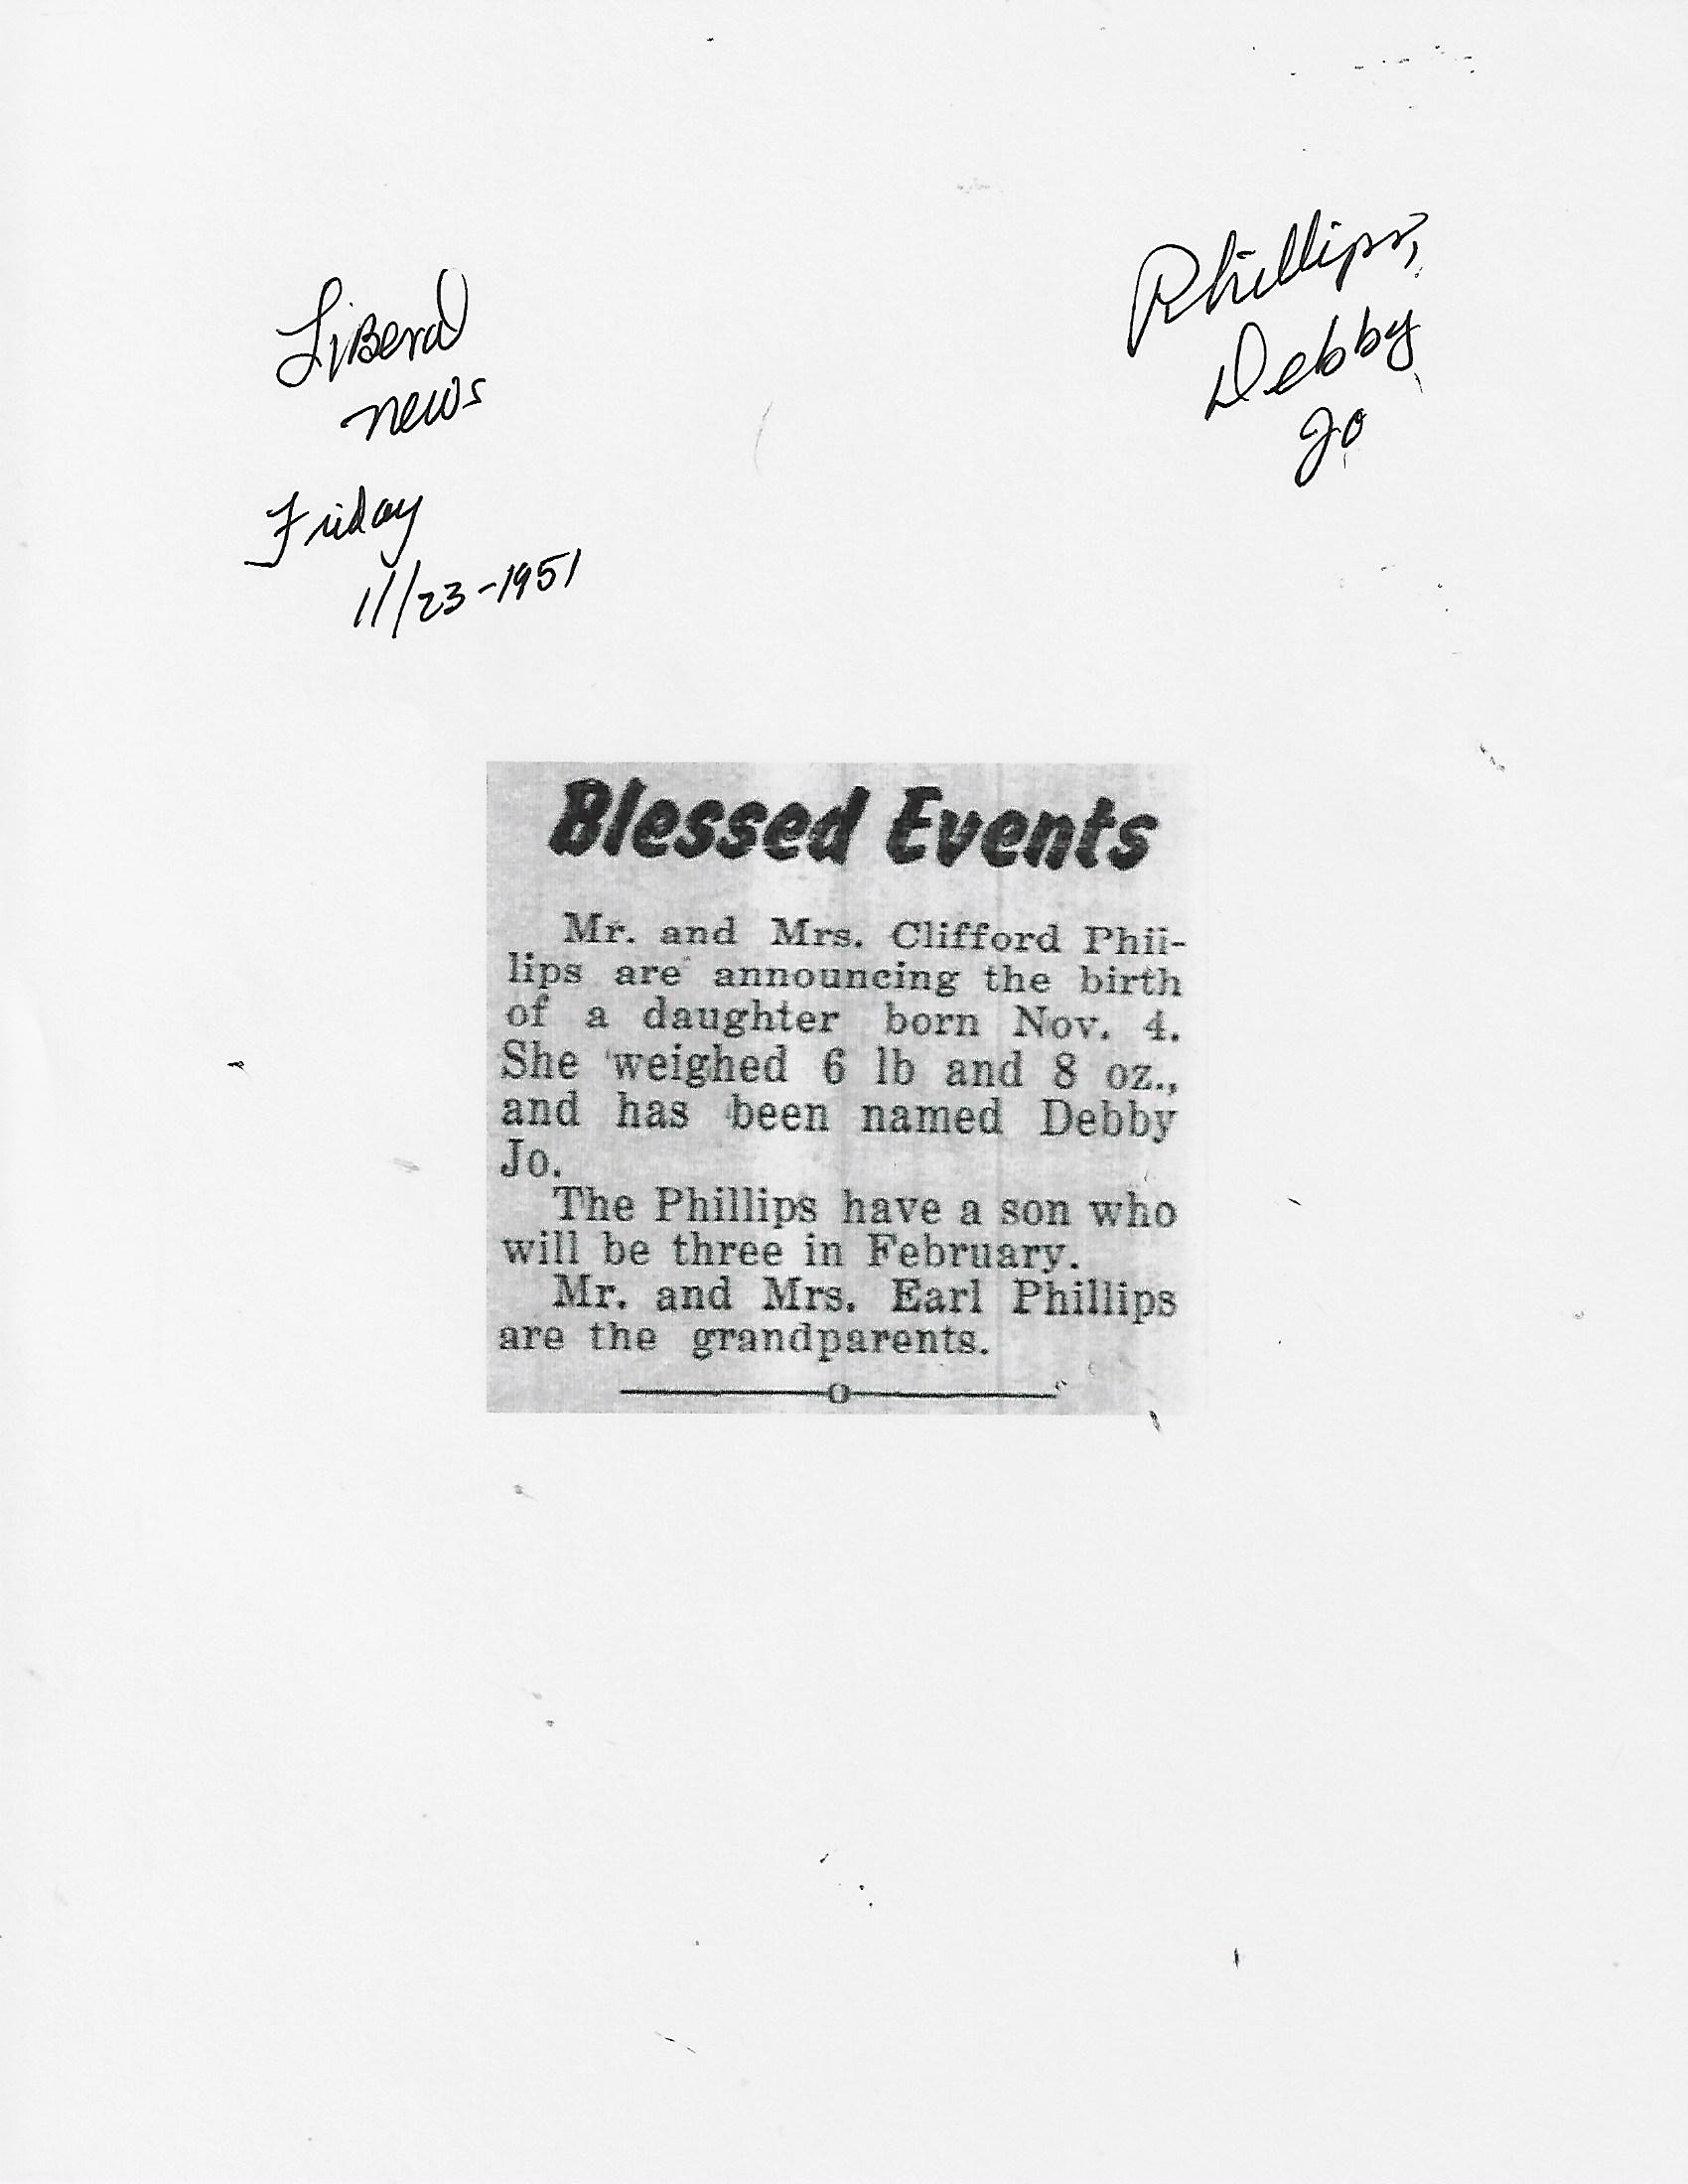 Liberal
news
Friday
11/23-1951
Phillips,
Debby
Jo
Blessed Events
Mr. and Mrs. Clifford Phil-
lips are announcing the birth
of a daughter born Nov. 4.
She weighed 6 lb and 8 oz.,
and has been named Debby
Jo.
The Phillips have a son who
will be three in February.
Mr. and Mrs. Earl Phillips
are the grandparents.